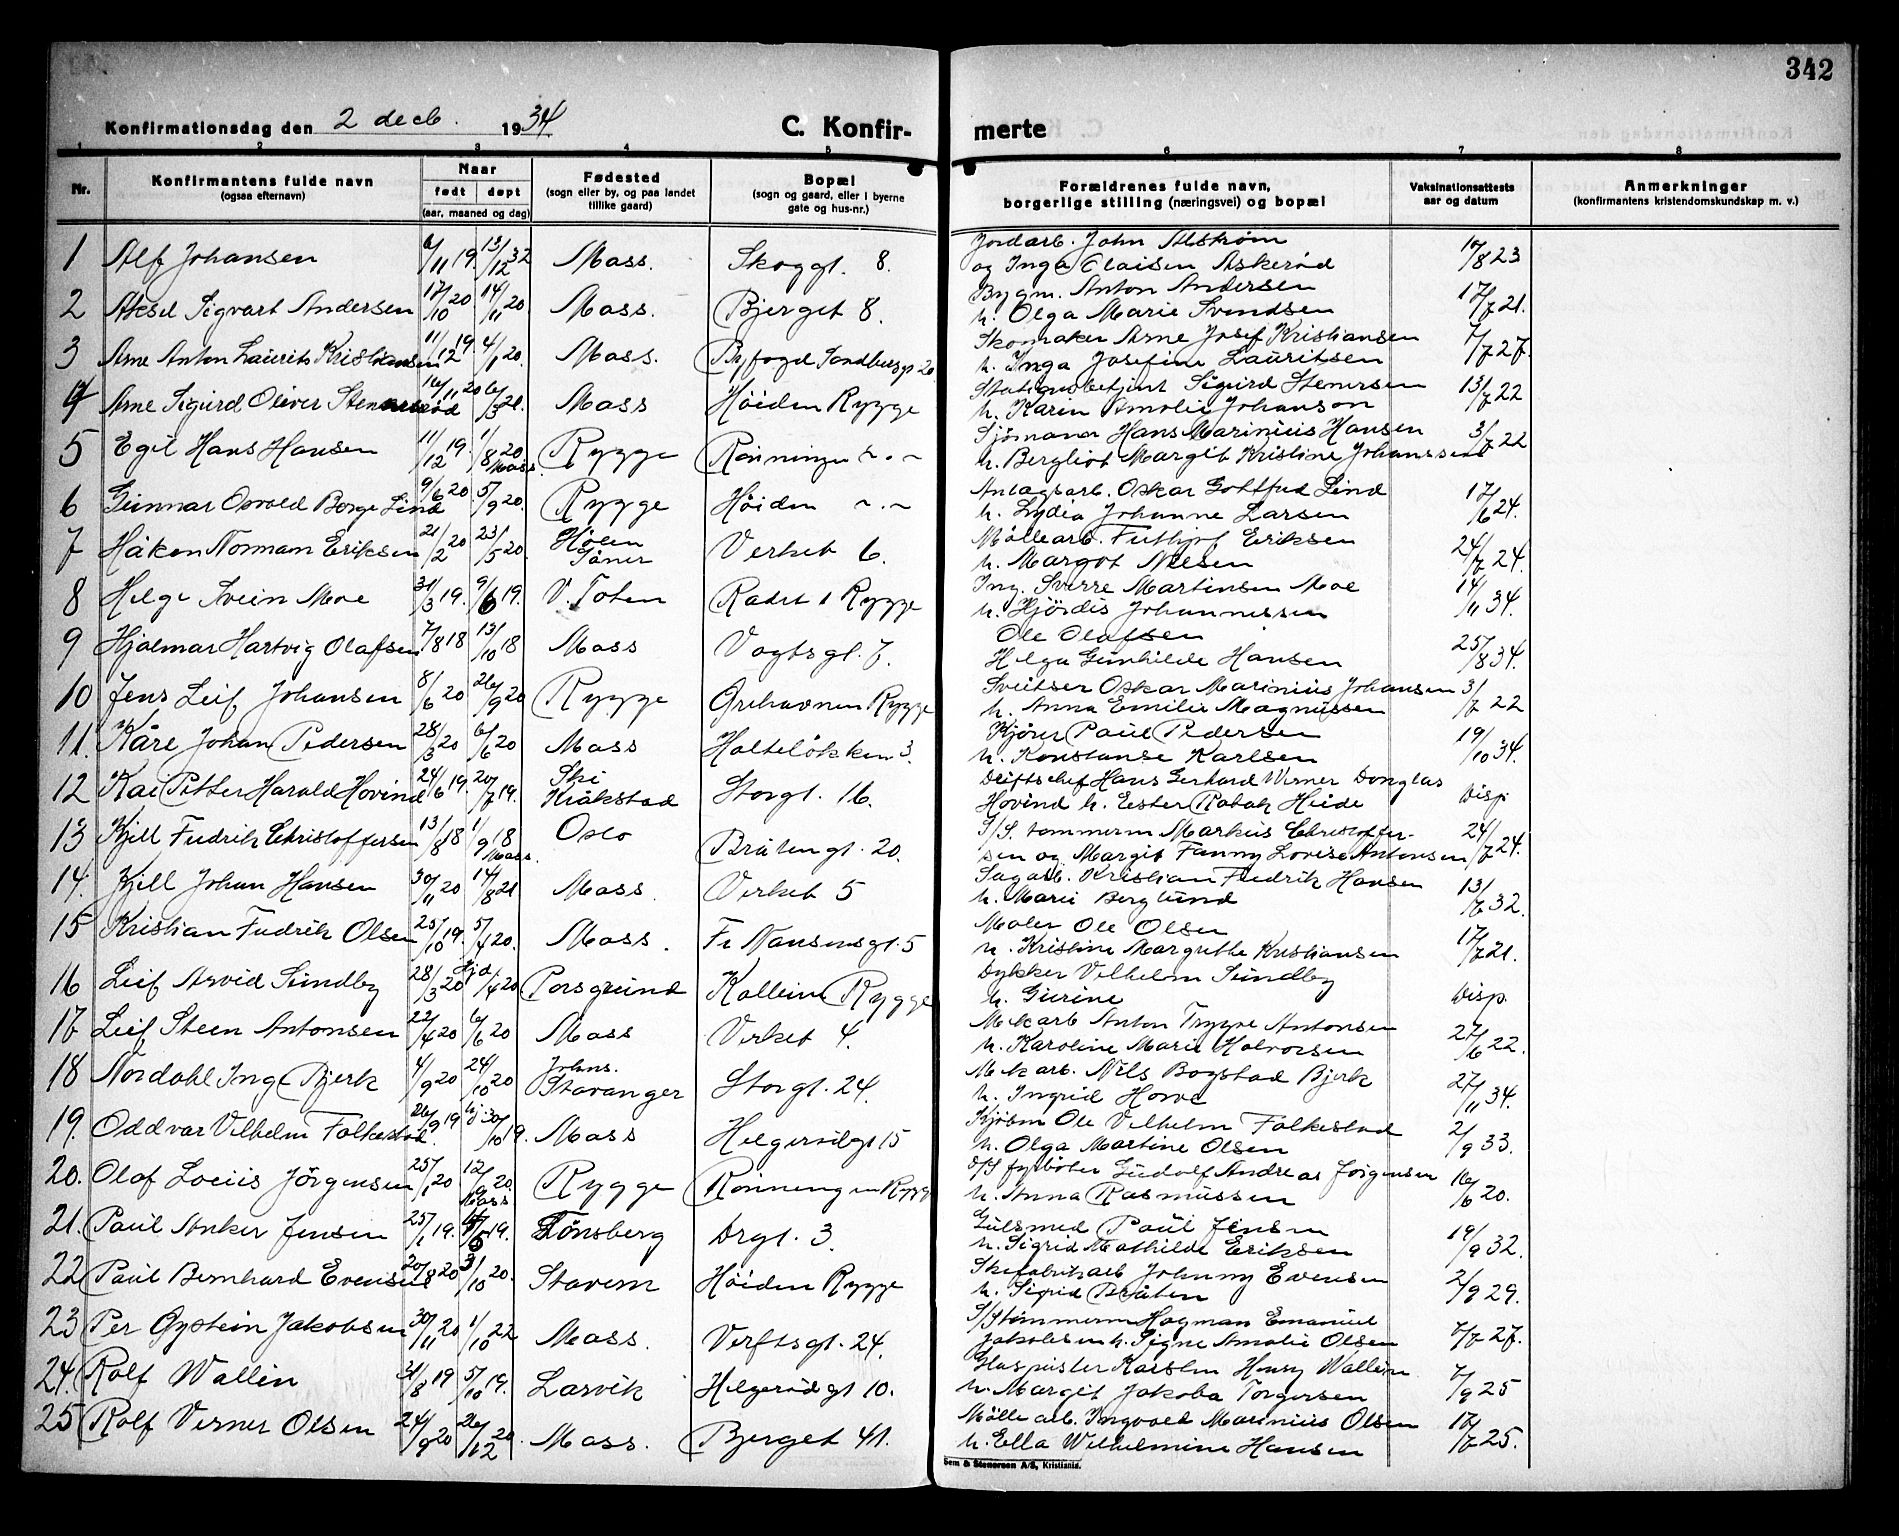 342
Konfirmationsdag den 2 decb. 1934
C. Konfir- merte
1 2 3 4 5 6 7 8
Nr.
Konfirmantens fulde navn
(ogsaa efternavn)
Naar
født døpt
(aar, maaned og dag)
Fødested
(sogn eller by, og paa landet
tillike gaard)
Bopæl
(sogn og gaard, eller i byerne
gate og hus-nr.)
Forældrenes fulde navn,
borgerlige stilling (næringsvei) og bopæl
Vaksinationsattests
aar og datum
Anmerkninger
(konfirmantens kristendomskundskap m. v.)
1 Alf Johansen 6/11 19. 13/12 32 Moss. Skoggt. 8. Jordarb. John Alstrøm 17/8 23
og Inga Olaisen Askerød
2 Aksel Sigvart Andersen 17/10 20 14/11 20 Moss. Bjerget 8. Bygm. Anton Andersen 17/7 21.
h. Olga Marie Svendsen
3 Arne Anton Laurits Kristiansen 11/12 19. 4/1 20. Moss. Byfogd Sandbergs gt 20 Skomaker Arne Josef Kristiansen 7/7 27.
h. Inga Josefine Lauritsen
4 Arne Sigurd Oliver 16/11 20 6/3 21. Moss Høiden Rygge Stationsbetjent Sigurd Stenersen 13/7 22
h. Karen Amalie Johanson
5 Egil Hans Hansen 11/12 19. 1/8 20 Moss. Rygge Rønningen ~.~ Sjømann Hans Marinius Hansen 3/7 22
h. Bergliot Margit Kristine Johanssen
6 Gunnar Osvald Borge Lind 9/6 20 5/9 20. Rygge Høiden ~.~ Anlagsarb. Oskar Gottfred Lind 17/6 24.
h. Lydia Johanne Larsen
7 Håkon Norman Eriksen 21/2 20 23/5 20. Hølen Verket 6. Møllearb. Fritjof Eriksen 24/7 24.
Såner h. Margot Nilsen
8 Helge Svein Moe 31/3 19. 9/6 19. V. Toten Radet i Rygge Ing. Sverre Martinsen Moe 14/11 34.
h. Hjørdis Johannessen
9 Hjalmar Hartvig Olafsen 7/8 18 13/10 18 Moss Vogtsgt. 7. Ole Olafsen 25/8 34.
Helga Gunhilde Hansen
10 Jens Leif Johansen 8/6 20 26/9 20 Rygge Grehavnen Rygge Sveitser Oskar Marinius Johansen 3/7 22
h. Anna Emilie Magnussen
11. Kåre Johan Pedersen 28/3 20 6/6 20 Moss Holteløkken 3. Kjører Paul Pedersen 19/10 34.
h. Konstanse Karlsen
12 Kai Petter Harald Hovind 24/6 19. 20/7 19. Ski Storgt. 16. Driftschef Hans Gerhard Werner Donglas Disp
Kråkstad Hovind h. Ester Heide
13 Kjell Fredrik Christoffersen 13/8 18 1/9 18 Moss. Oslo Bråtengt. 20. S/S. tømmerm Markus Christoffer- 24/7 24.
sen og Margit Fanny Lovise Antonsen
14. Kjell Johan Hansen 30/11 20 14/8 21 Moss. Verket 5 Sagarb. Kristian Fredrik Hansen 13/7 32.
h. Marie Berglund
15 Kristian Fredrik Olsen 25/10 19. 5/4 20. Moss. Fr. Nansensgt. 5 Maler Ole Olsen 17/7 21.
h. Kristine Margrethe Kristiansen
16 Leif Arvid Sundby 28/3 20 /4 20 Porsgrund Kollein Rygge Dykker Vilhelm Sundby Disp.
h. Gurine
17 Leif Steen Antonsen 22/4 20 6/6 20 Moss Verket 4. Mekarb Anton Trygve Antonsen 27/6 22.
h. Karoline Marie Halvorsen
18 Nordahl Inge Bjerk 4/9 20 24/10 20 Johns. Storgt. 24. Mekarb. Nils Bogstad Bjerk 27/11 34.
Stavanger h. Ingrid Hove
19. Oddvar Vilhelm Folkestad 26/9 19 hj. 30/10 19. Moss Helgerødgt 15 Kjøbm Ole Vilhelm Folkestad 2/9 33.
h. Olga Martine Olsen
20. Olaf Louis Jörgensen 25/1 20 12/9 20. Moss Rygge Rønningen Rygg D/S fyrbøter Gudolf Andreas Jørgensen 16/6 20.
h. Anna Rasmussen
21. Paul Anker Jensen 25/1 19. /6 19. Tønsberg Drgt. 3. Gulsmed Paul Jensen 19/9 32.
h. Sigrid Mathilde Eriksen
22 Paul Bernhard Evensen 20/8 20 3/10 20. Stavern Høiden Rygge Skofabrikarb Johnny Evensen 2/9 29.
h. Sigrid Bråten
23 Per Øystein Jakobsen 30/11 20 1/10 22 Moss. Verftsgt. 24. S/S tømmerm Hagman Emanuel 7/7 27.
Jakobsen h. Signe Amalie Olsen
24. Rolf Wallin 21/8 19 5/10 19. Larvik Helgerødgt 10. Glaspuster Karsten Henry Wallin 7/9 25
h. Margit Jakoba Torgersen
25 Rolf Verner Olsen 24/9 20 26/12 20. Moss. Bjerget 41. Møllearb. Ingvald Marinius Olsen 17/7 25.
h. Ella Wilhelmine Hansen
Sem & Stenersen A/S, Kristiania.